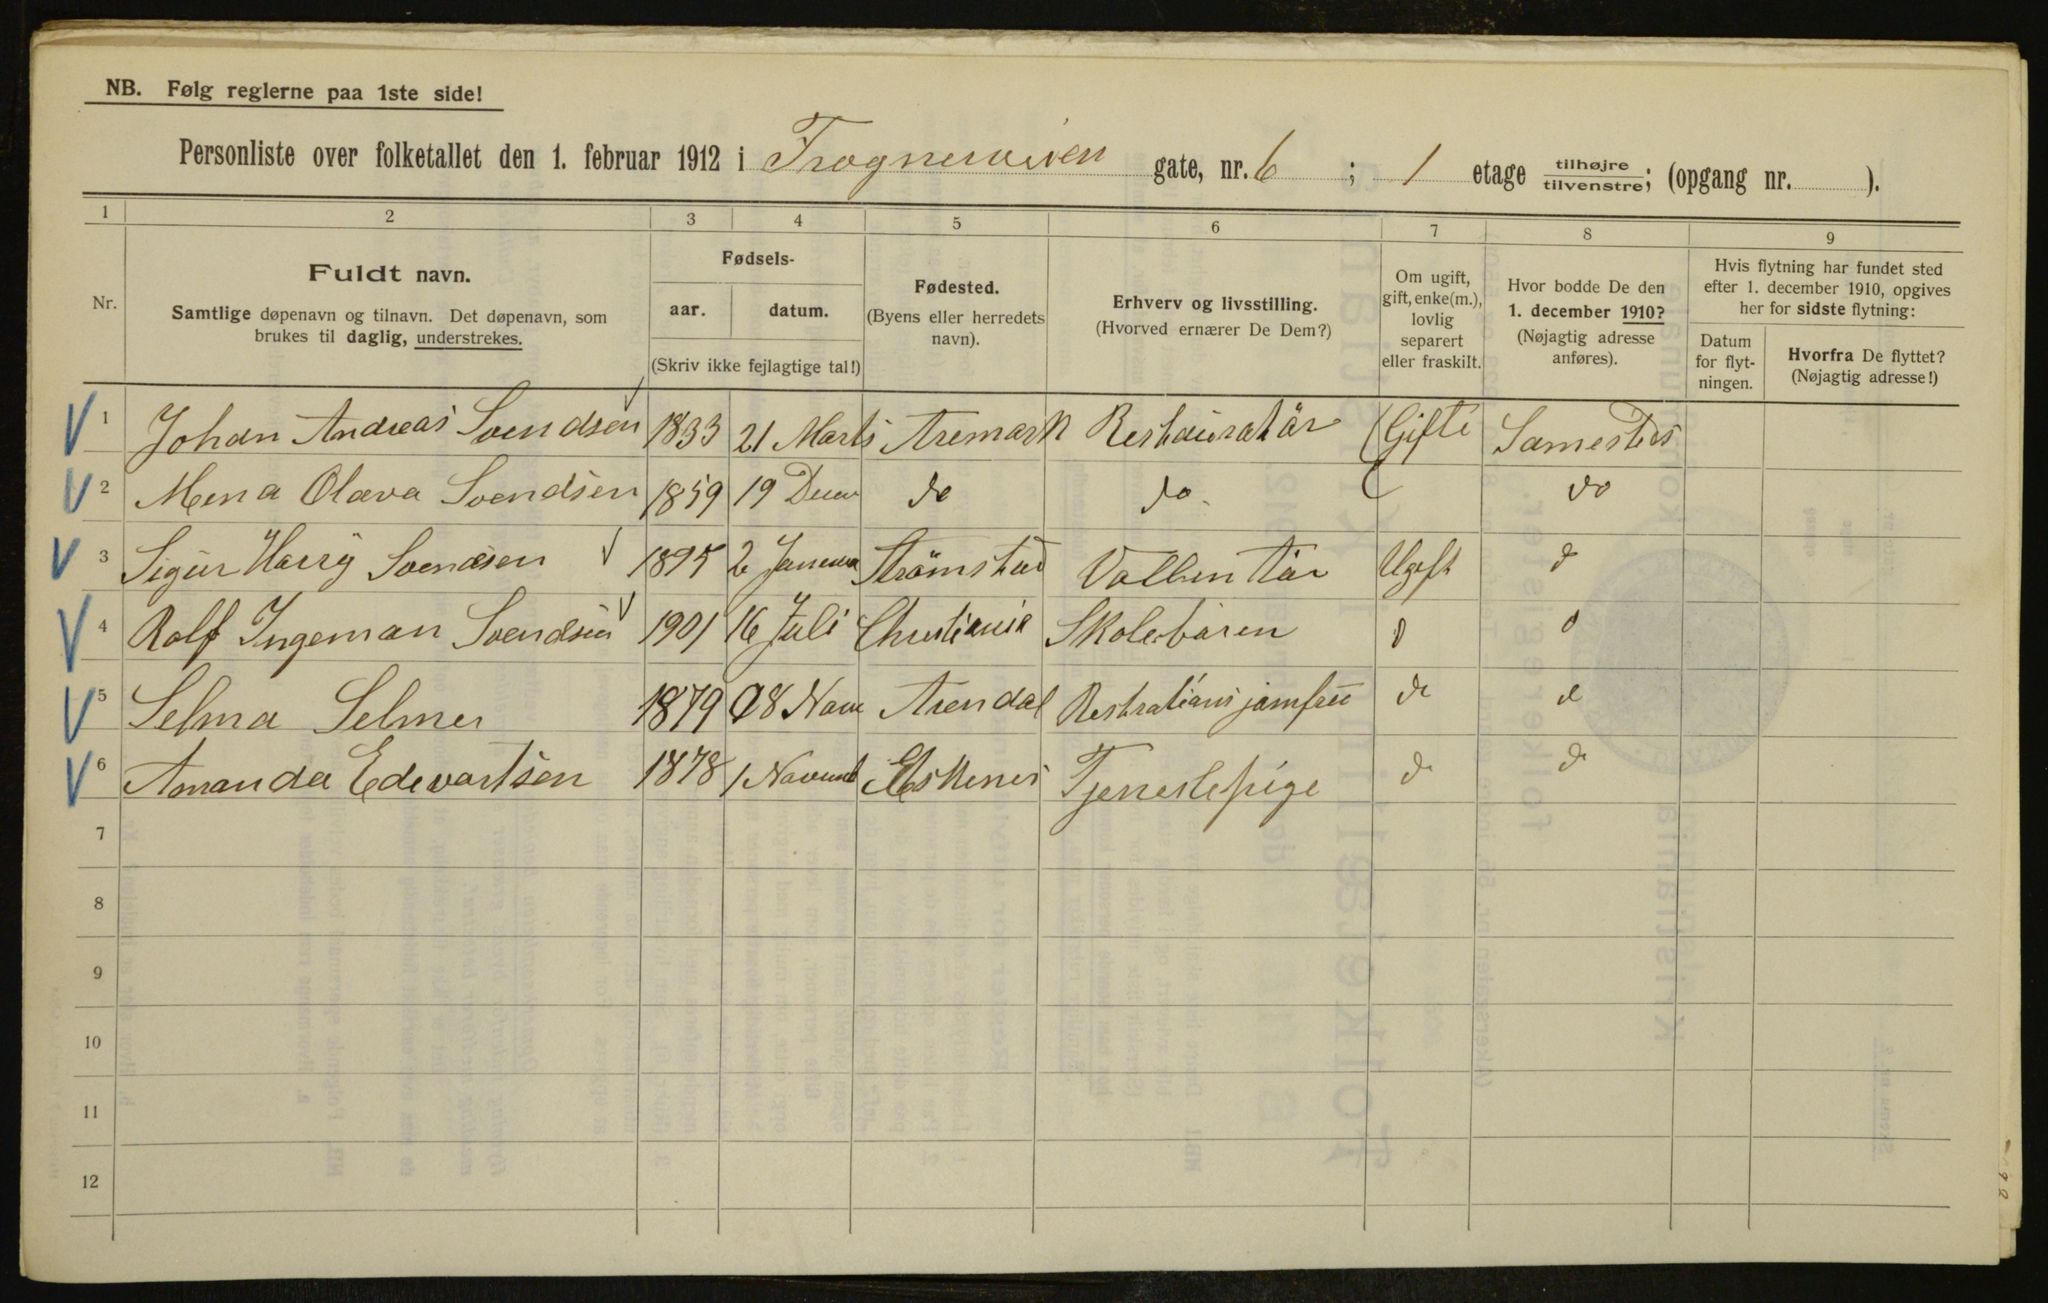 NB. Følg reglerne paa 1ste side!
Personliste over folketallet den 1. februar 1912 i Frogneveien gate, nr. 6 ; 1 etage tilhøjre/tilvenstre; (opgang nr. ).
1 2 3 4 5 6 7 8 9
Nr.
Fuldt navn.
Samtlige døpenavn og tilnavn. Det døpenavn, som
brukes til daglig, understrekes.
Fødsels-
aar. datum.
(Skriv ikke fejlagtige tal!)
Fødested.
(Byens eller herredets
navn).
Erhverv og livsstilling.
(Hvorved ernærer De Dem?)
Om ugift,
gift, enke(m.),
lovlig
separert
eller fraskilt.
Hvor bodde De den
1. december 1910?
(Nøjagtig adresse
anføres).
Hvis flytning har fundet sted
efter 1. december 1910, opgives
her for sidste flytning:
Datum
for flyt-
ningen.
Hvorfra De flyttet?
(Nøjagtig adresse!)
1 Johan Andreas Svendsen 1833 21 Marts Aremark Restauratør Gifti Samesteds
2 Mena Olava Svendsen 1859 19 do do. do
3 Sigur Harry Svendsen 1895 2 Strømstad Ugift d
4 Rolf Ingeman Svendsen 1901 16 Juli Christiania Skolebaren d d
5 Selma Selmer 1879 Nov Arendal d d
6 Amanda Edevartsen 1878 1 Novemb Tjenestepige d d
7
8
9
10
11
12